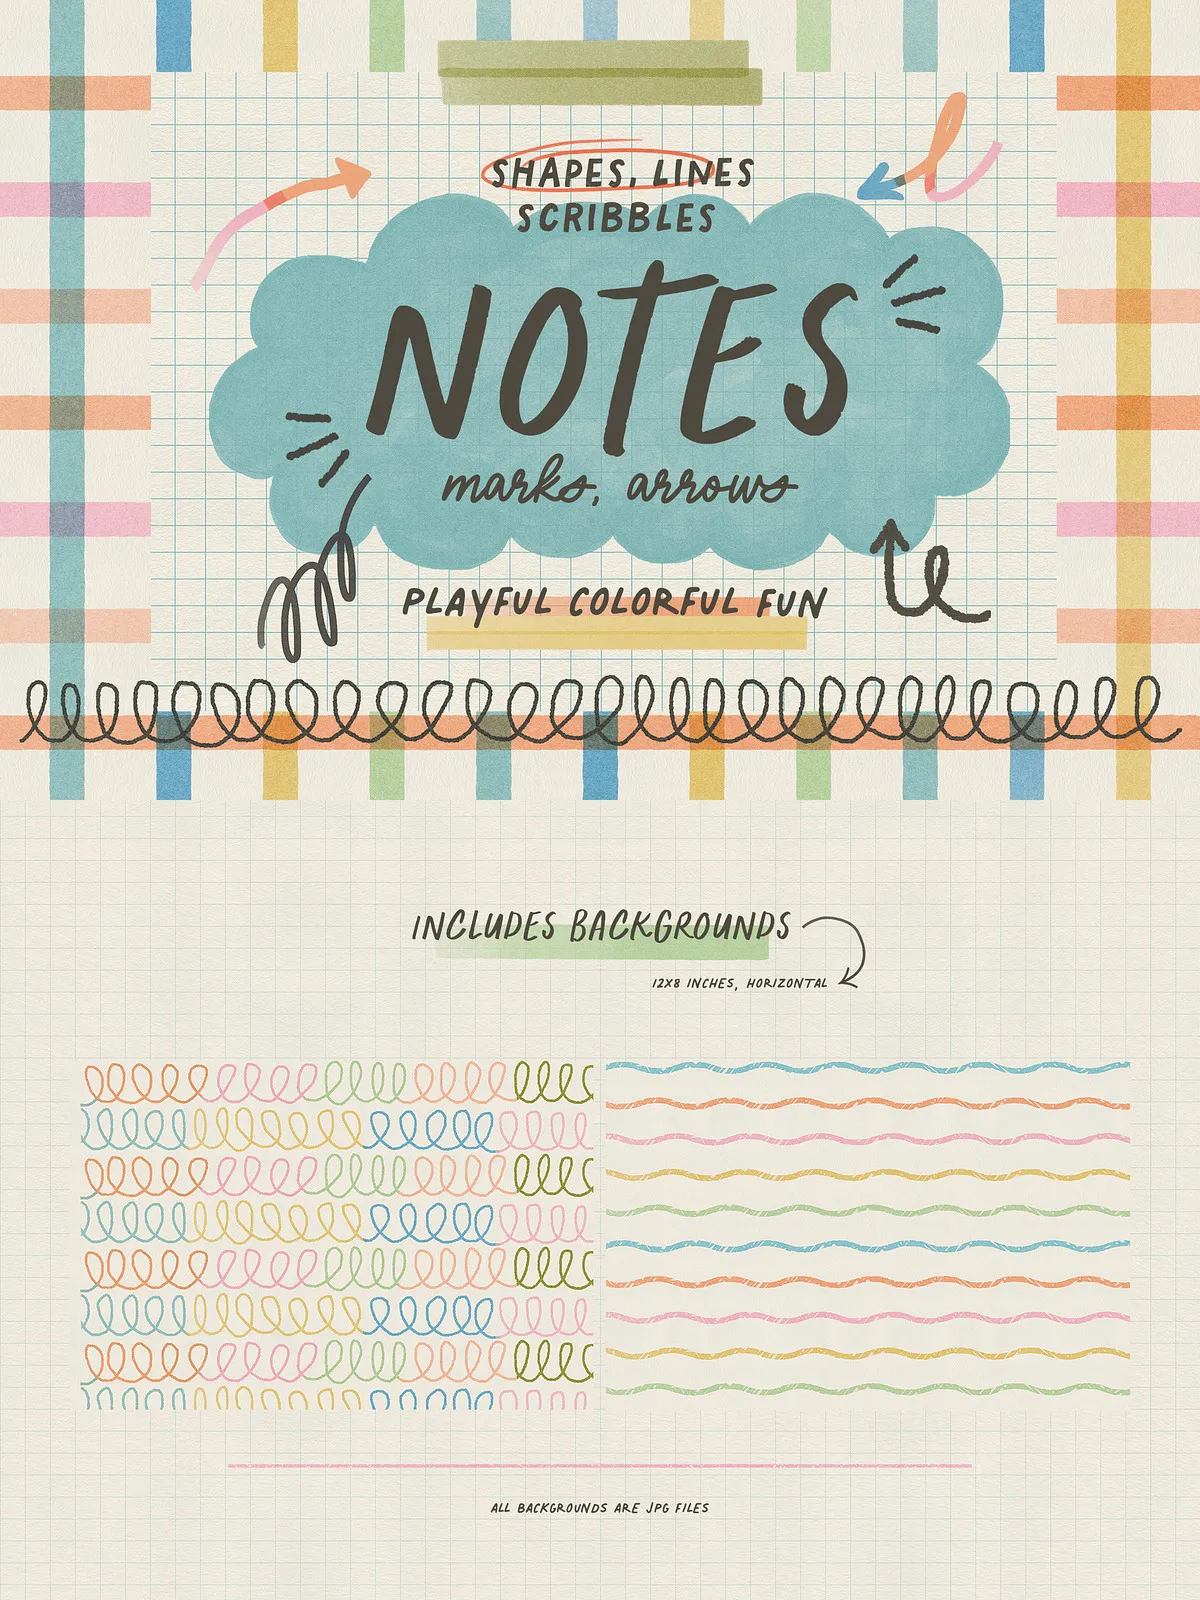 SHAPES, LINES
SCRIBBLES
NOTES
marks, arrows
PLAYFUL COLORFUL FUN
INCLUDES BACKGROUNDS
12X8 INCHES, HORIZONTAL
ALL BACKGROUNDS ARE JPG FILES